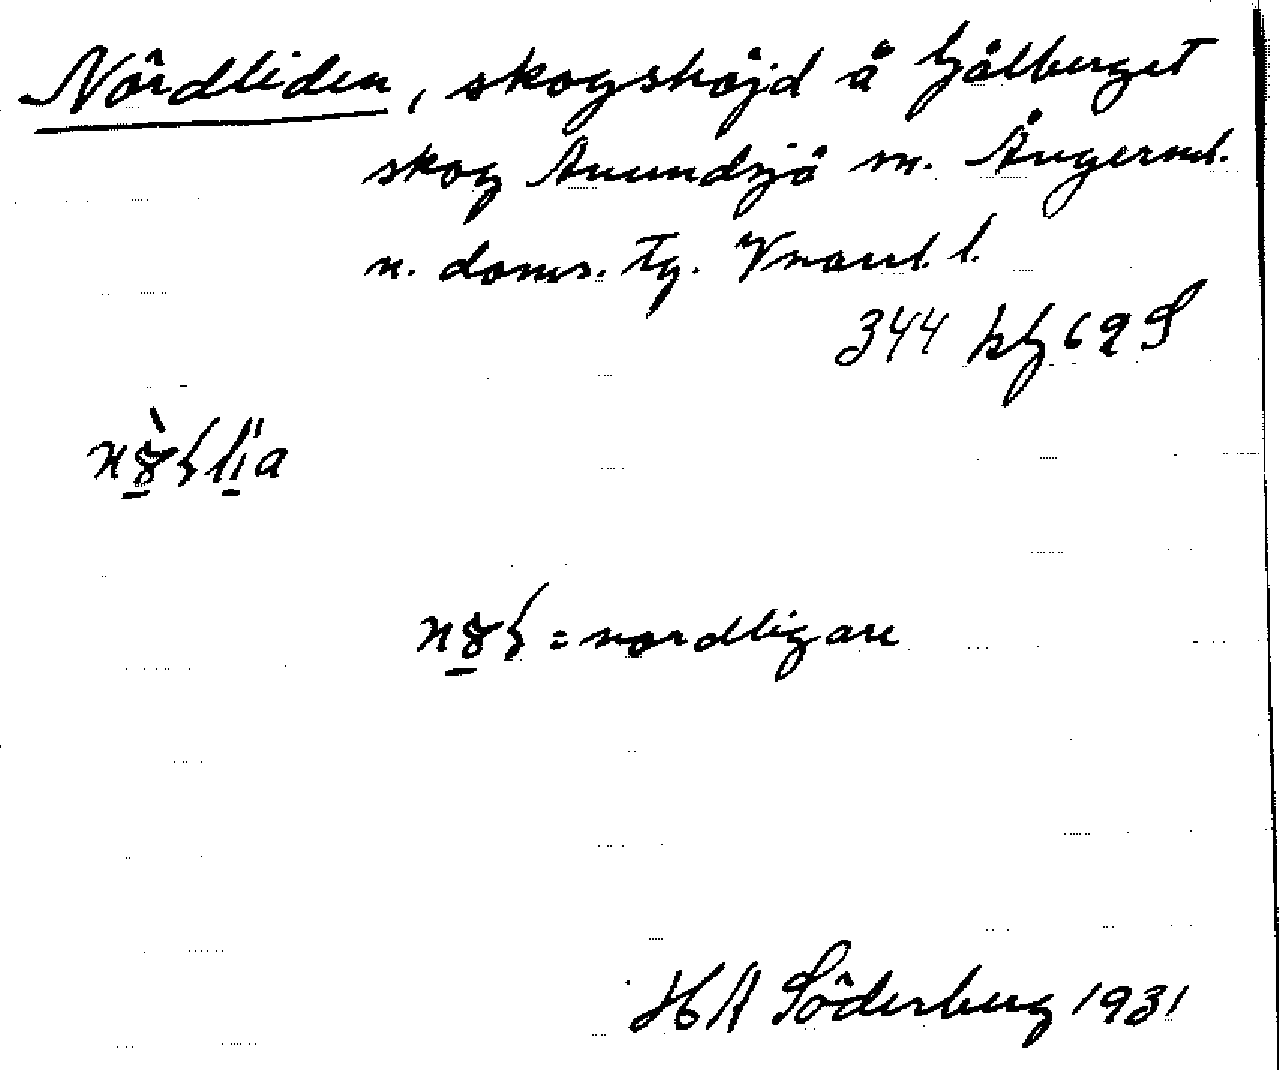 Nördliden, skogshöjd å Gålberget
skog Anundsjö sn. Ångerml.
n. doms. tg. Vnorrl. l.
344 kf 62 S
= nordligare
HA Söderberg 1931